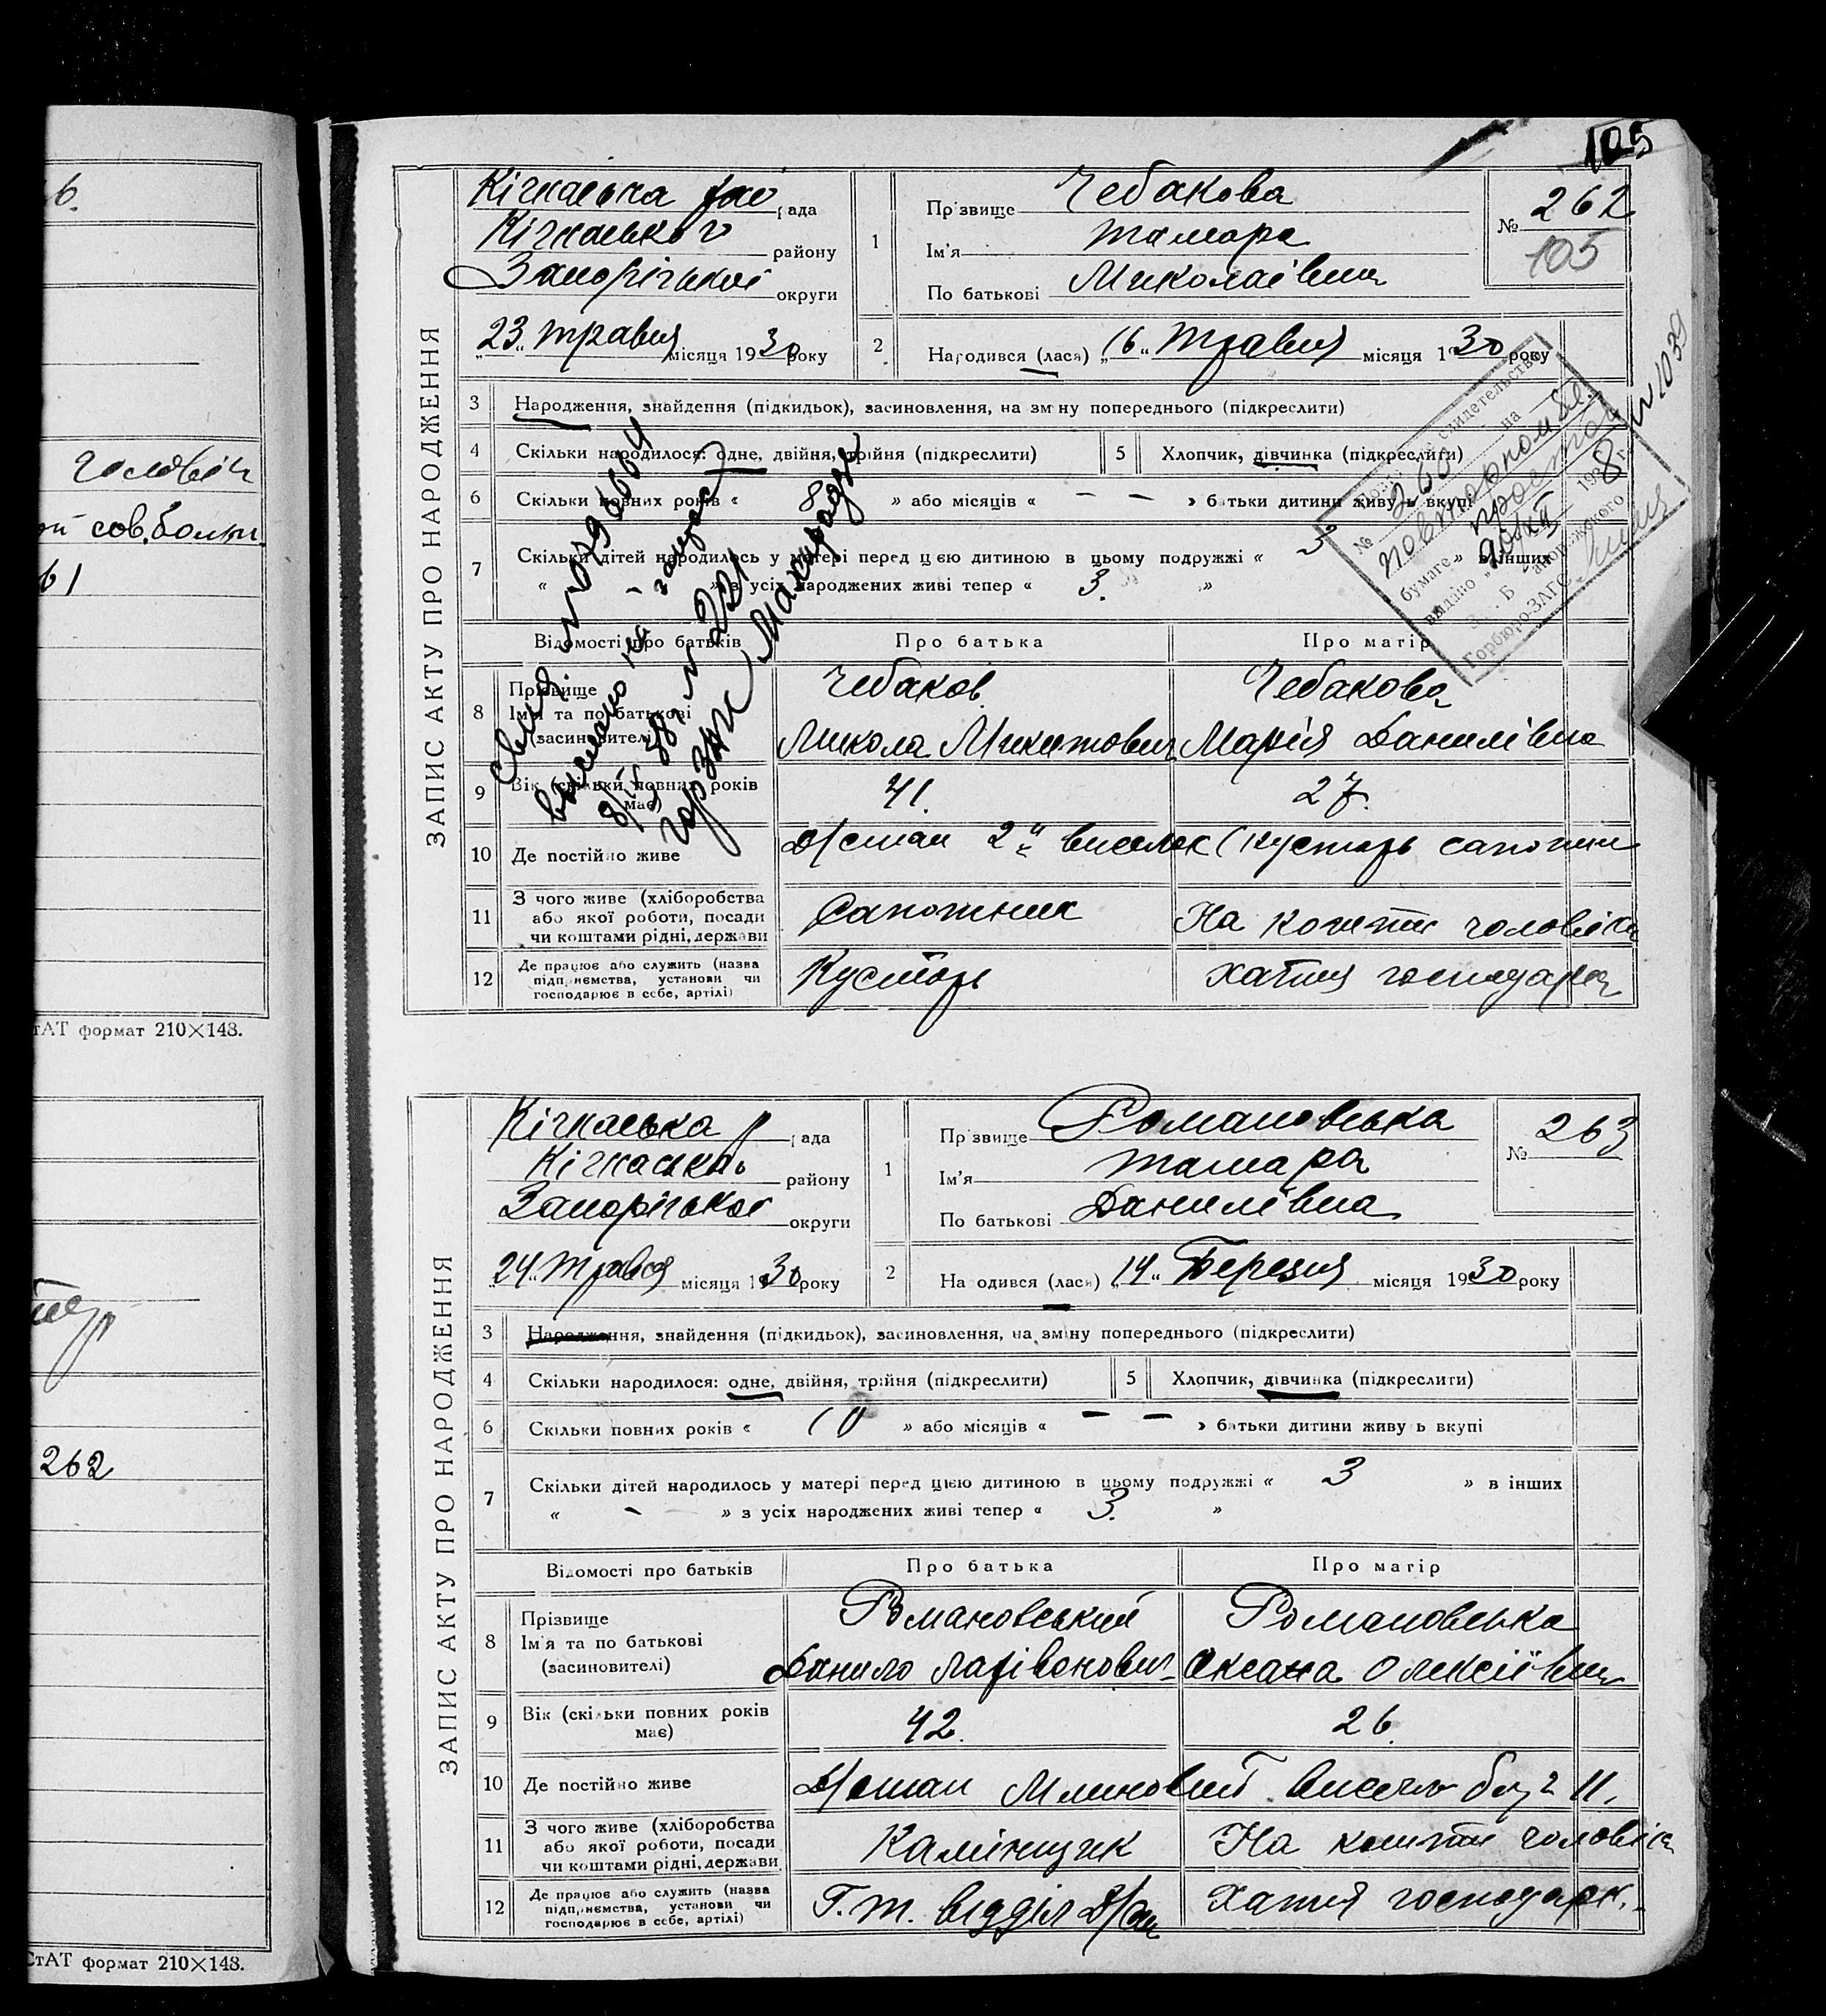 105
ЗАПИС АКТУ ПРО НАРОДЖЕННЯ
Кічкаська рада
району
Запорізької округи
23 травня місяця 1930 року
1
Прізвище Чебакова
Ім'я Тамара
По батькові Миколаївна
№ 262
105
2 Народився (лася) „16“ Травня місяця 1930 року
3 Народження, знайдення (підкидьок), засиновлення, на зміну попереднього (підкреслити)
4 Скільки народилося: одне, двійня, трійня (підкреслити)
5 Хлопчик, дівчинка (підкреслити)
6 Скільки повних років « 8 » або місяців « — — » батьки дитини живуть вкупі
7 Скільки дітей народилось у матері перед цією дитиною в цьому подружжі « 3 » в інших
« » з усіх народжених живі тепер « 3. »
Відомості про батьків Про батька Про матір
8 Прізвище Ім'я та по батькові (засновителі)
Чебаков Чебакова
Микола Марія Данилівна
9 Вік (скільки повних років має) 41. 27.
10 Де постійно живе Д/стан 2й виселок (кустарь
11 З чого живе (хліборобства або якої роботи, посади чи коштами рідні, держави Сапожник На кошти чоловіка
12 Де працює або служить (назва підприємства, установи чи господарює в себе, артілі) Кустарь хатня
свид. №
выслано на
горЗАГС
№
повторном
бумаге
выдано
Горбюро ЗАГС
№ 1039
ЗАПИС АКТУ ПРО НАРОДЖЕННЯ
Кічкаська рада
району
Запорізької округи
24 травня місяця 1930 року
1
Прізвище Романовська
Ім'я Тамара
По батькові Данилівна
№ 263
2 Народився (лася) „14“ Березня місяця 1930 року
3 Народження, знайдення (підкидьок), засиновлення, на зміну попереднього (підкреслити)
4 Скільки народилося: одне, двійня, трійня (підкреслити)
5 Хлопчик, дівчинка (підкреслити)
6 Скільки повних років « 10 » або місяців « — — » батьки дитини живуть вкупі
7 Скільки дітей народилось у матері перед цією дитиною в цьому подружжі « 3 » в інших
« - » з усіх народжених живі тепер « 3. »
Відомості про батьків Про батька Про матір
8 Прізвище Ім'я та по батькові (засиновителі)
Романовський Романовська
Данило Ларівонович Оксана Олексіївна
9 Вік (скільки повних років має) 42. 26
10 Де постійно живе Д/стан Млиновий 11.
11 З чого живе (хліборобства або якої роботи, посади чи коштами рідні, держави Камінщик На кошти чоловіка
12 Де працює або служить (назва підприємства, установи чи господарює в себе, артілі) Г.т. відділ Хатня господарк.
чоловік
61
СтАТ формат 210×148.
262
СтАТ формат 210×148.